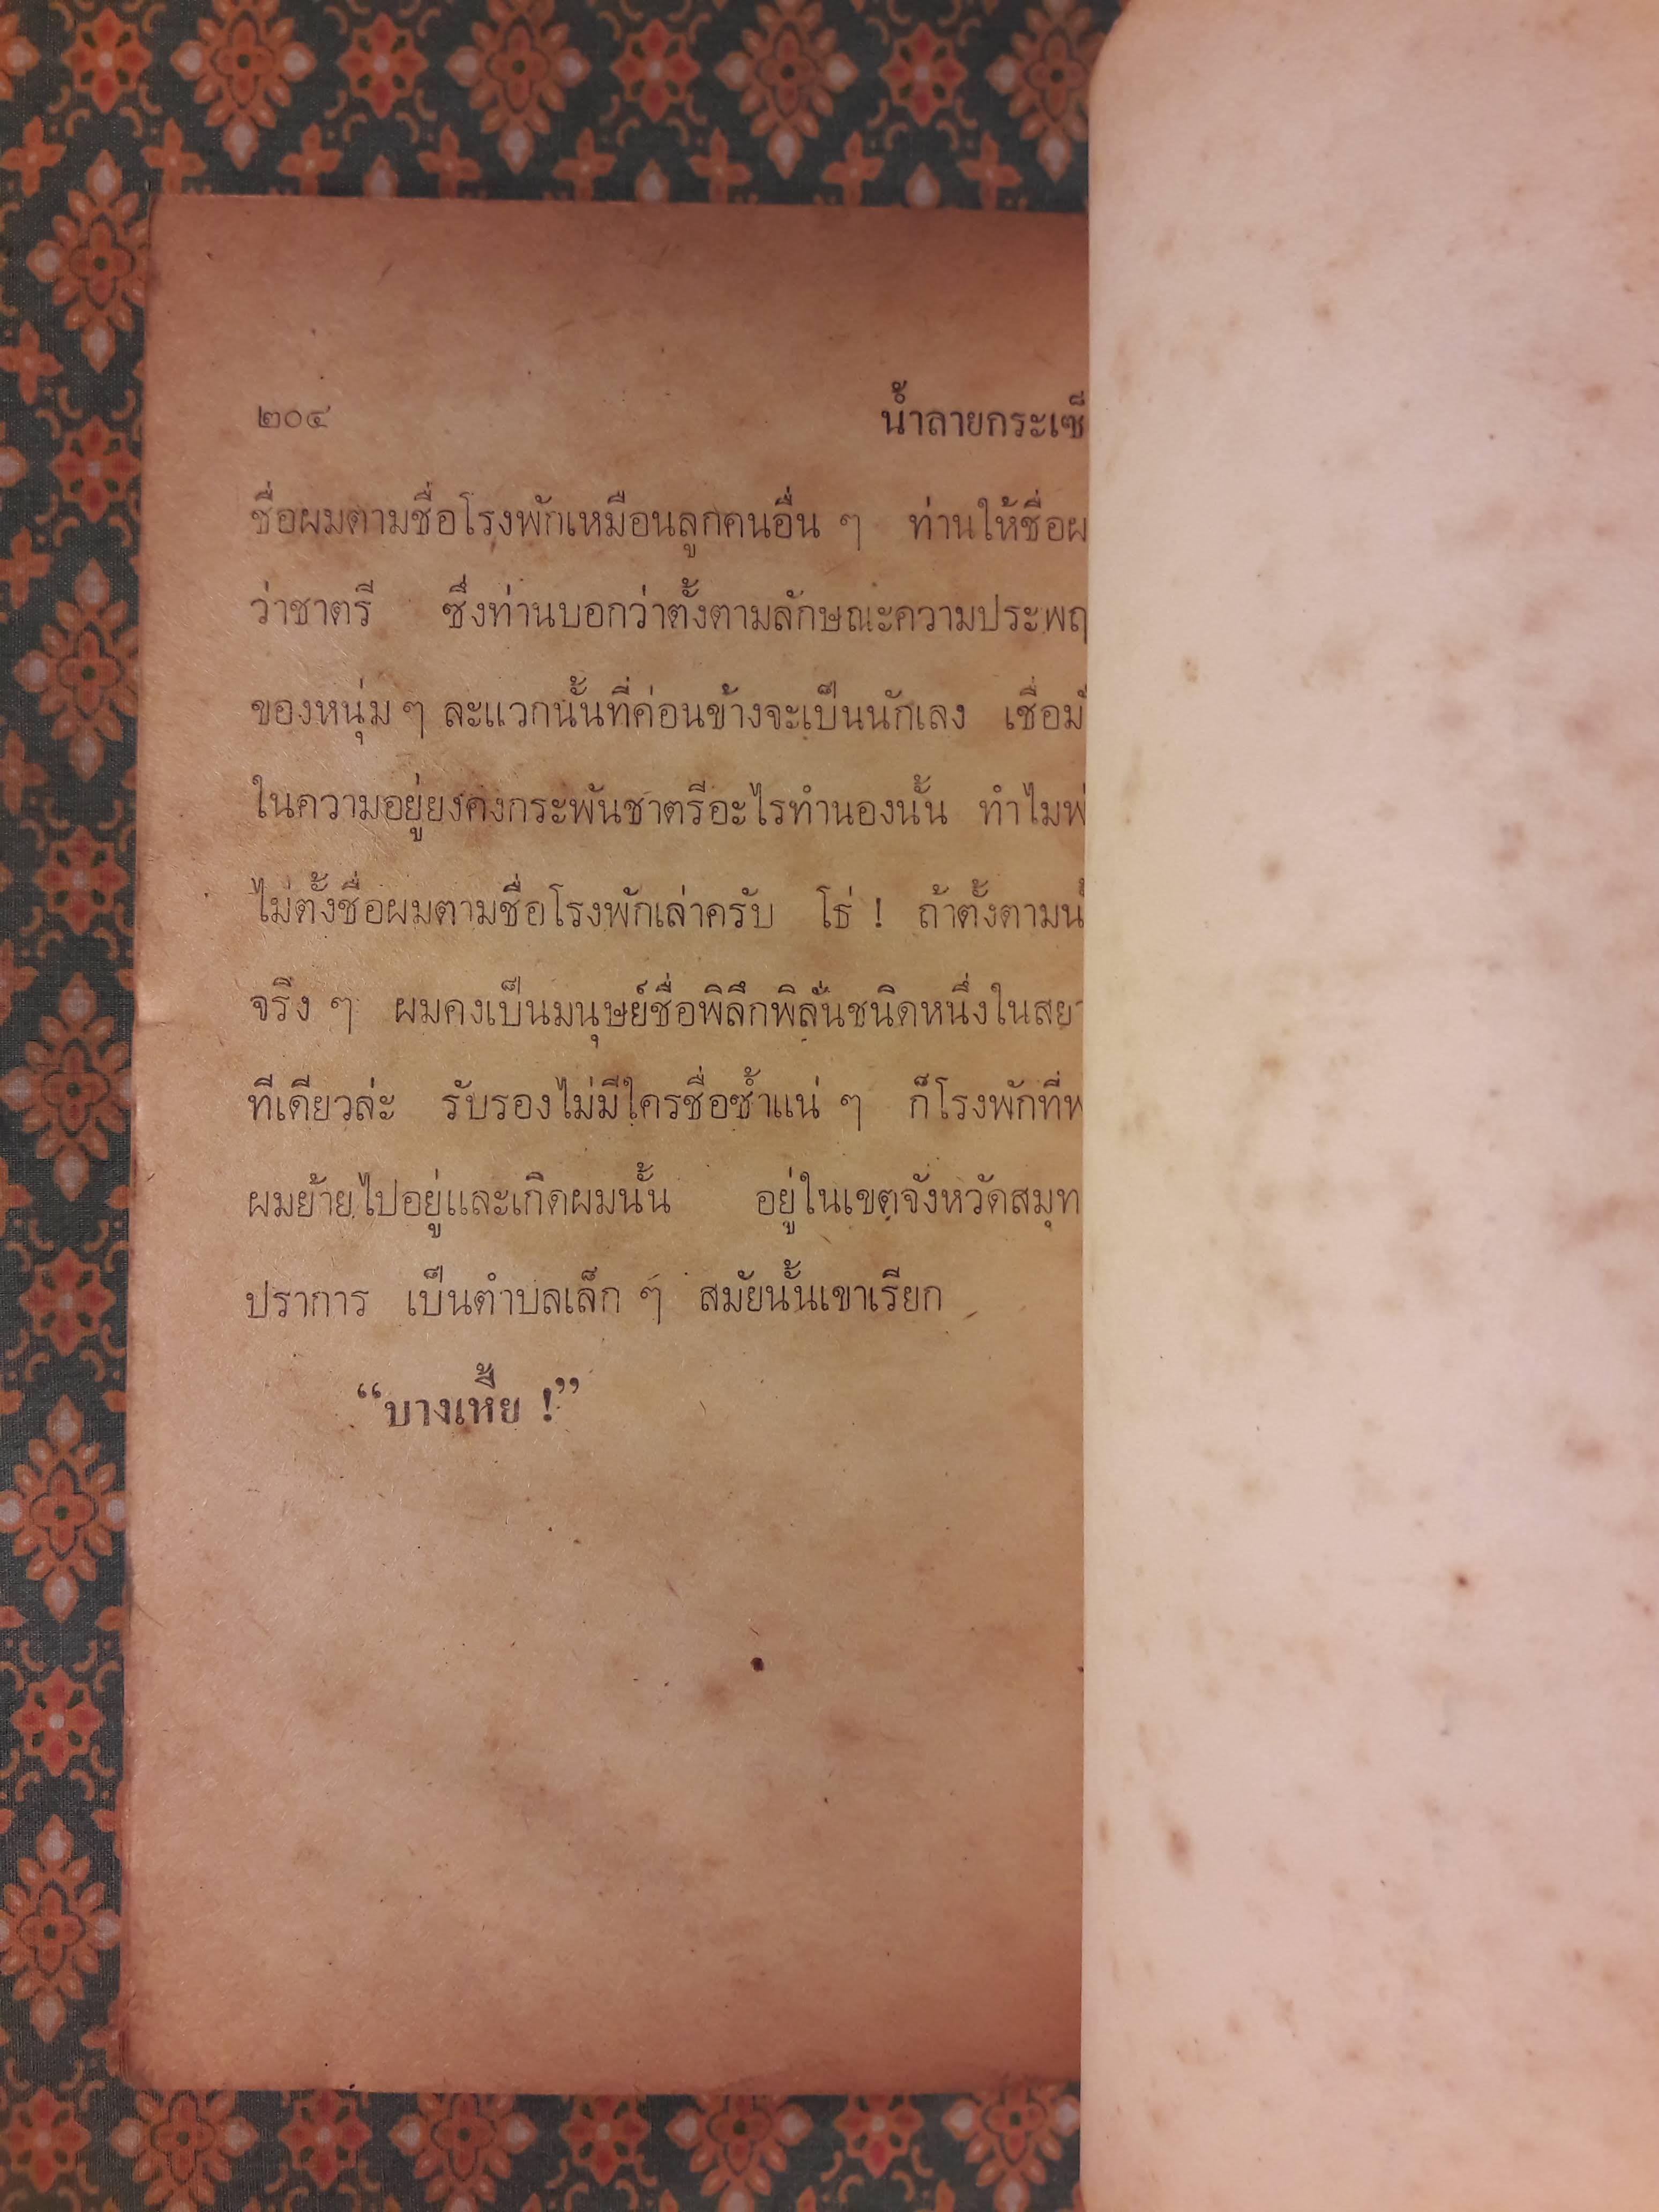 ๒๐๔ น้ำลายกระเซ็
ชื่อผมตามชื่อโรงพักเหมือนลูกคนอื่น ๆ ท่านให้ชื่อผ
ว่าชาตรี ซึ่งท่านบอกว่าตั้งตามลักษณะความประพฤ
ของหนุ่ม ๆ ละแวกนั้นที่ค่อนข้างจะเป็นนักเลง เชื่อมั
ในความอยู่ยงคงกระพันชาตรีอะไรทำนองนั้น ทำไมพ่
ไม่ตั้งชื่อผมตามชื่อโรงพักเล่าครับ โธ่ ! ถ้าตั้งตามนั้
จริง ๆ ผมคงเป็นมนุษย์ชื่อพิลึกพิลั่นชนิดหนึ่งในสยา
ทีเดียวล่ะ รับรองไม่มีใครชื่อซ้ำแน่ ๆ ก็โรงพักที่พ
ผมย้ายไปอยู่และเกิดผมนั้น อยู่ในเขตจังหวัดสมุท
ปราการ เป็นตำบลเล็ก ๆ สมัยนั้นเขาเรียก
“บางเหี้ย !”